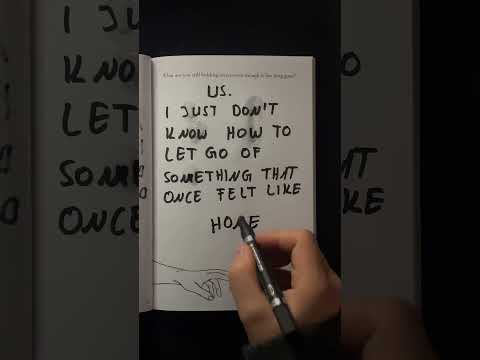 What are you still holding onto even though it has long gone?
US.
I JUST DON'T
KNOW HOW TO
LET GO OF
SOMETHING THAT
ONCE FELT LIKE
HOME